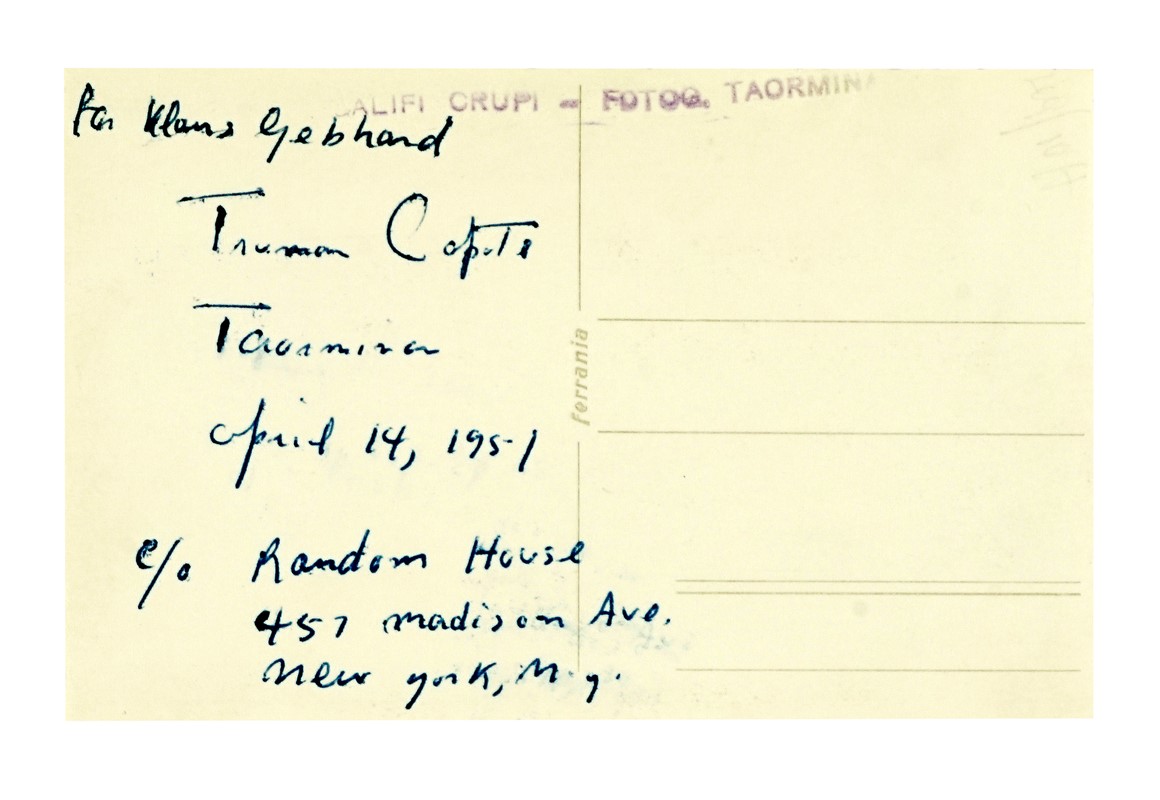 For Klaus Gebhard
Truman Capote
Taormina
april 14, 1951
c/o Random House
457 madison Ave.
New york, N.y.
CRUPI - FOTOG. TAORMINA
ferrania